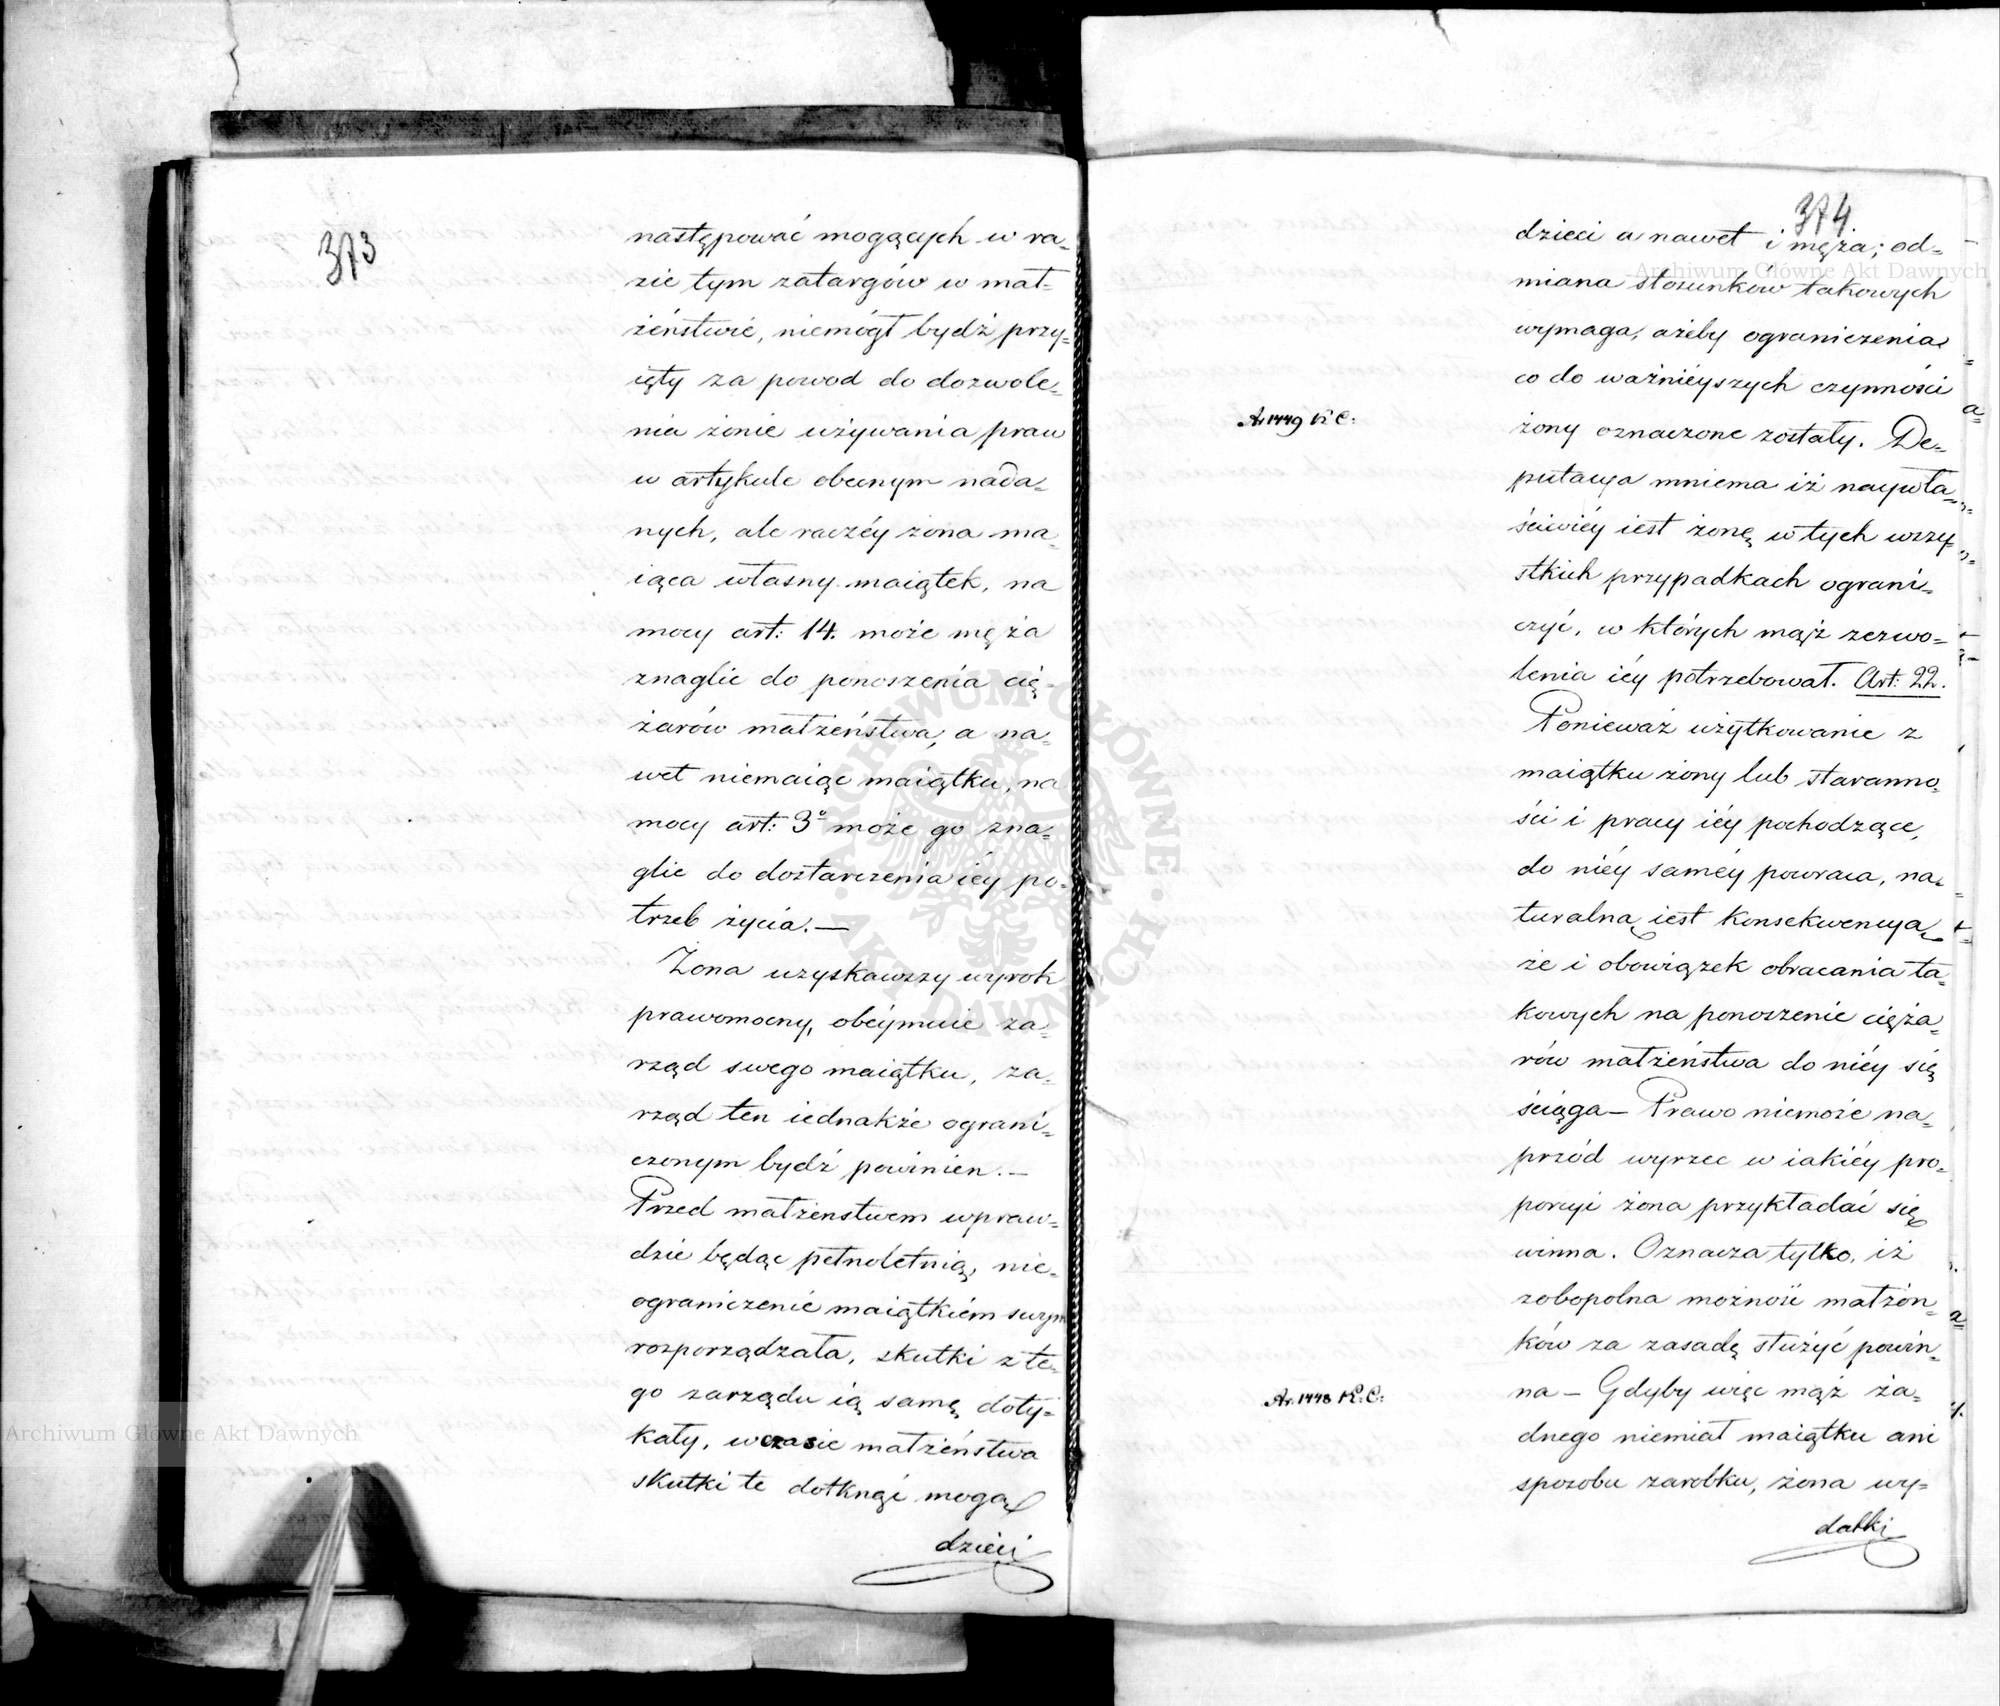 373
następować mogących w ra-
zie tym zatargów w mał-
żeństwie, niemógł bydź przy-
ięty za powod do dozwole-
nia żonie używania praw
w artykule obecnym nada-
nych, ale raczéy żona ma-
iąca własny maiątek, na
mocy art: 14. może męża
znaglić do ponoszenia cię-
żarów małżeństwa, a na-
wet niemaiąc maiątku, na
mocy art: 3º może go zna-
glić do dostarczenia iéy po-
trzeb życia.—
Żona uzyskawszy wyrok
prawomocny, obéymuie za-
rząd swego maiątku, za-
rząd ten iednakże ograni-
czonym bydź powinien.—
Przed małżenstwem wpraw-
dzie będąc pełnoletnią, nie-
ograniczenie maiątkiem swym
rozporządzała, skutki z te-
go zarządu ią samę doty-
kały, w czasie małżeństwa
skutki te dotknąć mogą
dzieci
374
dzieci a nawet i męża; od-
miana stosunkow takowych
wymaga, ażeby ograniczenia
co do ważniéyszych czynności
żony oznaczone zostały. De-
Ar 1449 K C:
putacya mniema iż naywła-
ściwiéy iest żonę w tych wszy-
stkich przypadkach ograni-
czyć, w których mąż zezwo-
lenia iéy potrzebował. Art: 22.
Ponieważ użytkowanie z
maiątku żony lub staranno-
ści i pracy iéy pochodzące,
do niéy saméy powraca, na-
turalną iest konsekwencyą
że i obowiązek obracania ta-
kowych na ponoszenie cięża-
rów małżeństwa do niéy się
ściąga— Prawo niemoże na-
przód wyrzec w iakiéy pro-
porcyi żona przykładać się
winna. Oznacza tylko, iż
zobopolna możność małżon-
ków za zasadę służyć powin-
na — Gdyby więc mąż ża-
Ar. 1448 K: C:
dnego niemiał maiątku ani
sposobu zarobku, żona wy-
datki
Archiwum Główne Akt Dawnych
Archiwum Główne Akt Dawnych
ARCHIWUM GŁÓWNE AKT DAWNYCH